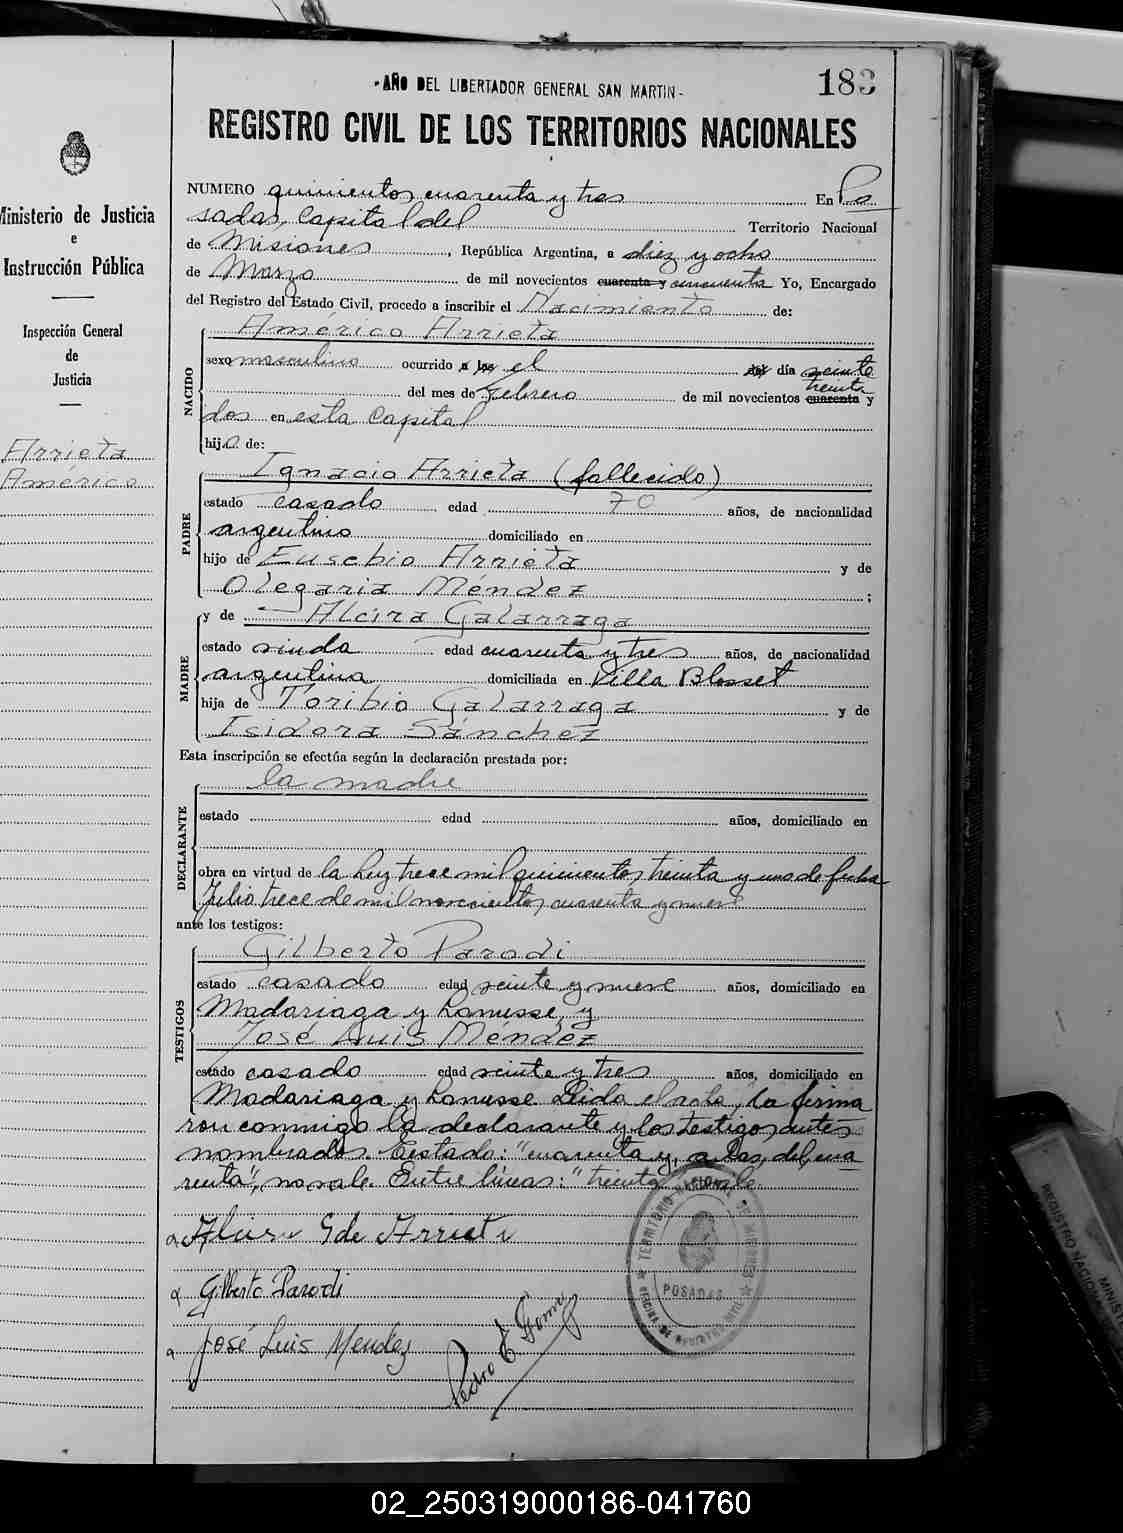 -AÑO DEL LIBERTADOR GENERAL SAN MARTIN-
183
REGISTRO CIVIL DE LOS TERRITORIOS NACIONALES
Ministerio de Justicia
e
Instrucción Pública
Inspección General
de
Justicia
Arrieta
Américo
NUMERO quinientos cuarenta y tres En Po
sadas, Capital del Territorio Nacional
de Misiones, República Argentina, a diez y ocho
de Marzo de mil novecientos cuarenta y cincuenta Yo, Encargado
del Registro del Estado Civil, procedo a inscribir el Nacimiento de:
NACIDO
Américo Arrieta
sexo masculino ocurrido a las el del día veinte
treinta
del mes de febrero de mil novecientos cuarenta y
dos en esta Capital
hijo de:
PADRE
Ignacio Arrieta (fallecido)
estado casado edad 70 años, de nacionalidad
argentino domiciliado en
hijo de Eusebio Arrieta y de
Olegaria Méndez ;
y de Alcira Galarraga
MADRE
estado viuda edad cuarenta y tres años, de nacionalidad
argentina domiciliada en Villa Blosset
hija de Toribio Galarraga y de
Isidora Sánchez
Esta inscripción se efectúa según la declaración prestada por:
DECLARANTE
la madre
estado edad años, domiciliado en
obra en virtud de la Ley trece mil quinientos treinta y uno de fecha
Julio trece de mil novecientos cuarenta y nueve
ante los testigos:
TESTIGOS
Gilberto Parodi
estado casado edad veinte y nueve años, domiciliado en
Madariaga y Lanusse, y
José Luis Méndez
estado casado edad veinte y tres años, domiciliado en
Madariaga y Lanusse. Leida el acta, la firma
ron conmigo la declarante y los testigos antes
nombrados. Testado: "cuarenta y, a las, del, cua
renta", no vale. Entre líneas: "treinta" vale.
TERRITORIO NACIONAL DE MISIONES
POSADAS
OFICINA DE REGISTRO CIVIL
Alcira G de Arrieta
Gilberto Parodi
José Luis Mendez
Pedro E. Gomez
REGISTRO NACIONAL
MINIST
02_250319000186-041760